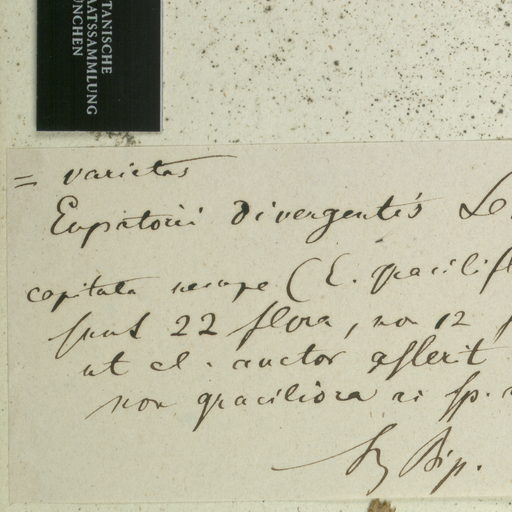 BOTANISCHE
STAATSSAMMLUNG
MÜNCHEN
= varietas
Eupatorii divergentis Le
capitula nempe (E. gracilifl
sunt 22 flora, non 12 f
ut cl. auctor asserit
non graciliora
Sz Bip.